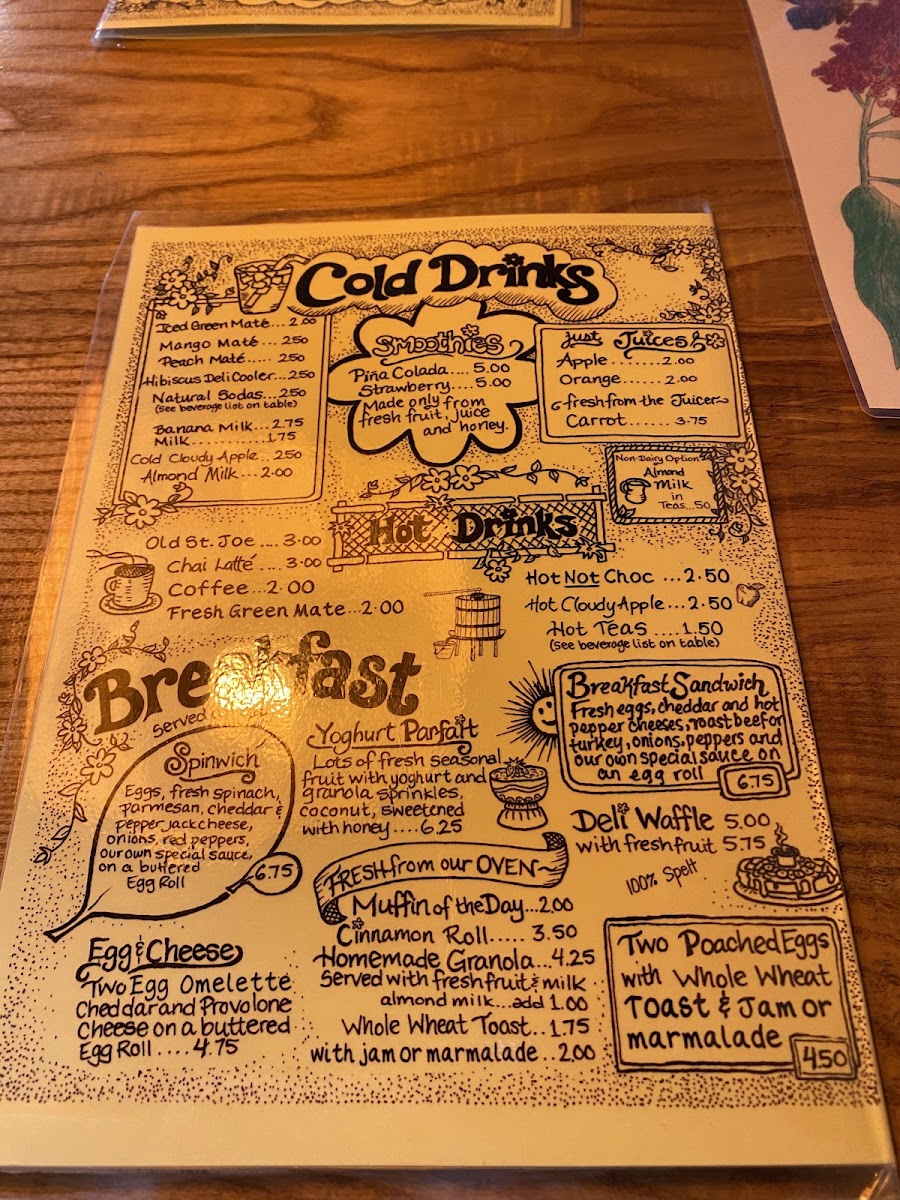 Cold Drinks
Iced Green Maté... 2.00
Mango Maté... 2.50
Peach Maté..... 2.50
Hibiscus Deli Cooler...2.50
Natural Sodas...2.50
(see beverage list on table)
Banana Milk...2.75
Milk............1.75
Cold Cloudy Apple..2.50
Almond Milk...2.00
Smoothies
Piña Colada.... 5.00
Strawberry.... 5.00
Made only from
fresh fruit, juice
and honey.
Just Juices
Apple.......2.00
Orange.......2.00
fresh from the Juicer
Carrot...... 3.75
Non-Dairy Option
Almond
Milk
in
Teas...50
Hot Drinks
Old St. Joe .... 3.00
Chai Latté .... 3.00
Coffee...2.00
Fresh Green Mate...2.00
Hot Not Choc ...2.50
Hot Cloudy Apple...2.50
Hot Teas ....1.50
(see beverage list on table)
Breakfast
Served
Spinwich
Eggs, fresh spinach,
parmesan, cheddar &
pepper jack cheese,
onions, red peppers,
our own special sauce,
on a buttered
Egg Roll
6.75
Yoghurt Parfait
Lots of fresh seasonal
fruit with yoghurt and
granola sprinkles,
coconut, sweetened
with honey....6.25
Breakfast Sandwich
Fresh eggs, cheddar and hot
pepper cheeses, roast beef or
turkey, onions, peppers and
our own special sauce on
an egg roll
6.75
Deli Waffle 5.00
with fresh fruit 5.75
100% Spelt
FRESH from our OVEN
Muffin of the Day...2.00
Cinnamon Roll..... 3.50
Homemade Granola...4.25
Served with fresh fruit & milk
almond milk...add 1.00
Whole Wheat Toast..1.75
with jam or marmalade..2.00
Egg & Cheese
Two Egg Omelette
Cheddar and Provolone
Cheese on a buttered
Egg Roll....4.75
Two Poached Eggs
with Whole Wheat
Toast & Jam or
marmalade
4.50